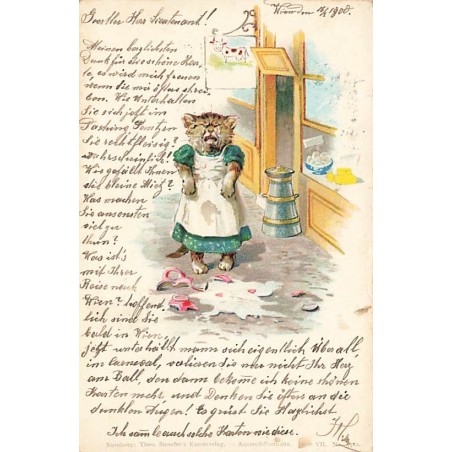 Geehrter Herr Lieutenant!
Wien den 11/2 1900.
Meinen herzlichsten
Dank für die schöne Kar-
te, es wird mich freuen
wenn Sie mir öfters schrei-
ben. Wie unterhalten
Sie sich jetzt im
Fasching Tanzen
Sie recht fleissig?
wahrscheinlich!
Wie gefällt Ihnen
die kleine Miez?
Was machen
Sie ansonsten
Thun?
Was ist's
mit Ihrer
Reise nach
Wien? hoffend
lich sind Sie
bald in Wien,
jetzt unterhällt mann sich eigentlich Überall,
im Carneval, verlieren Sie nur nicht Ihr Herz
am Ball, den dann bekome ich keine schönen
Karten mehr, und Denken Sie öfters an die
dunklen Augen! Es grüst Sie Herzlichst
Ich samle auch solche Karten wie diese.
Nürnberg: Theo. Stroefer's Kunstverlag.
VII.